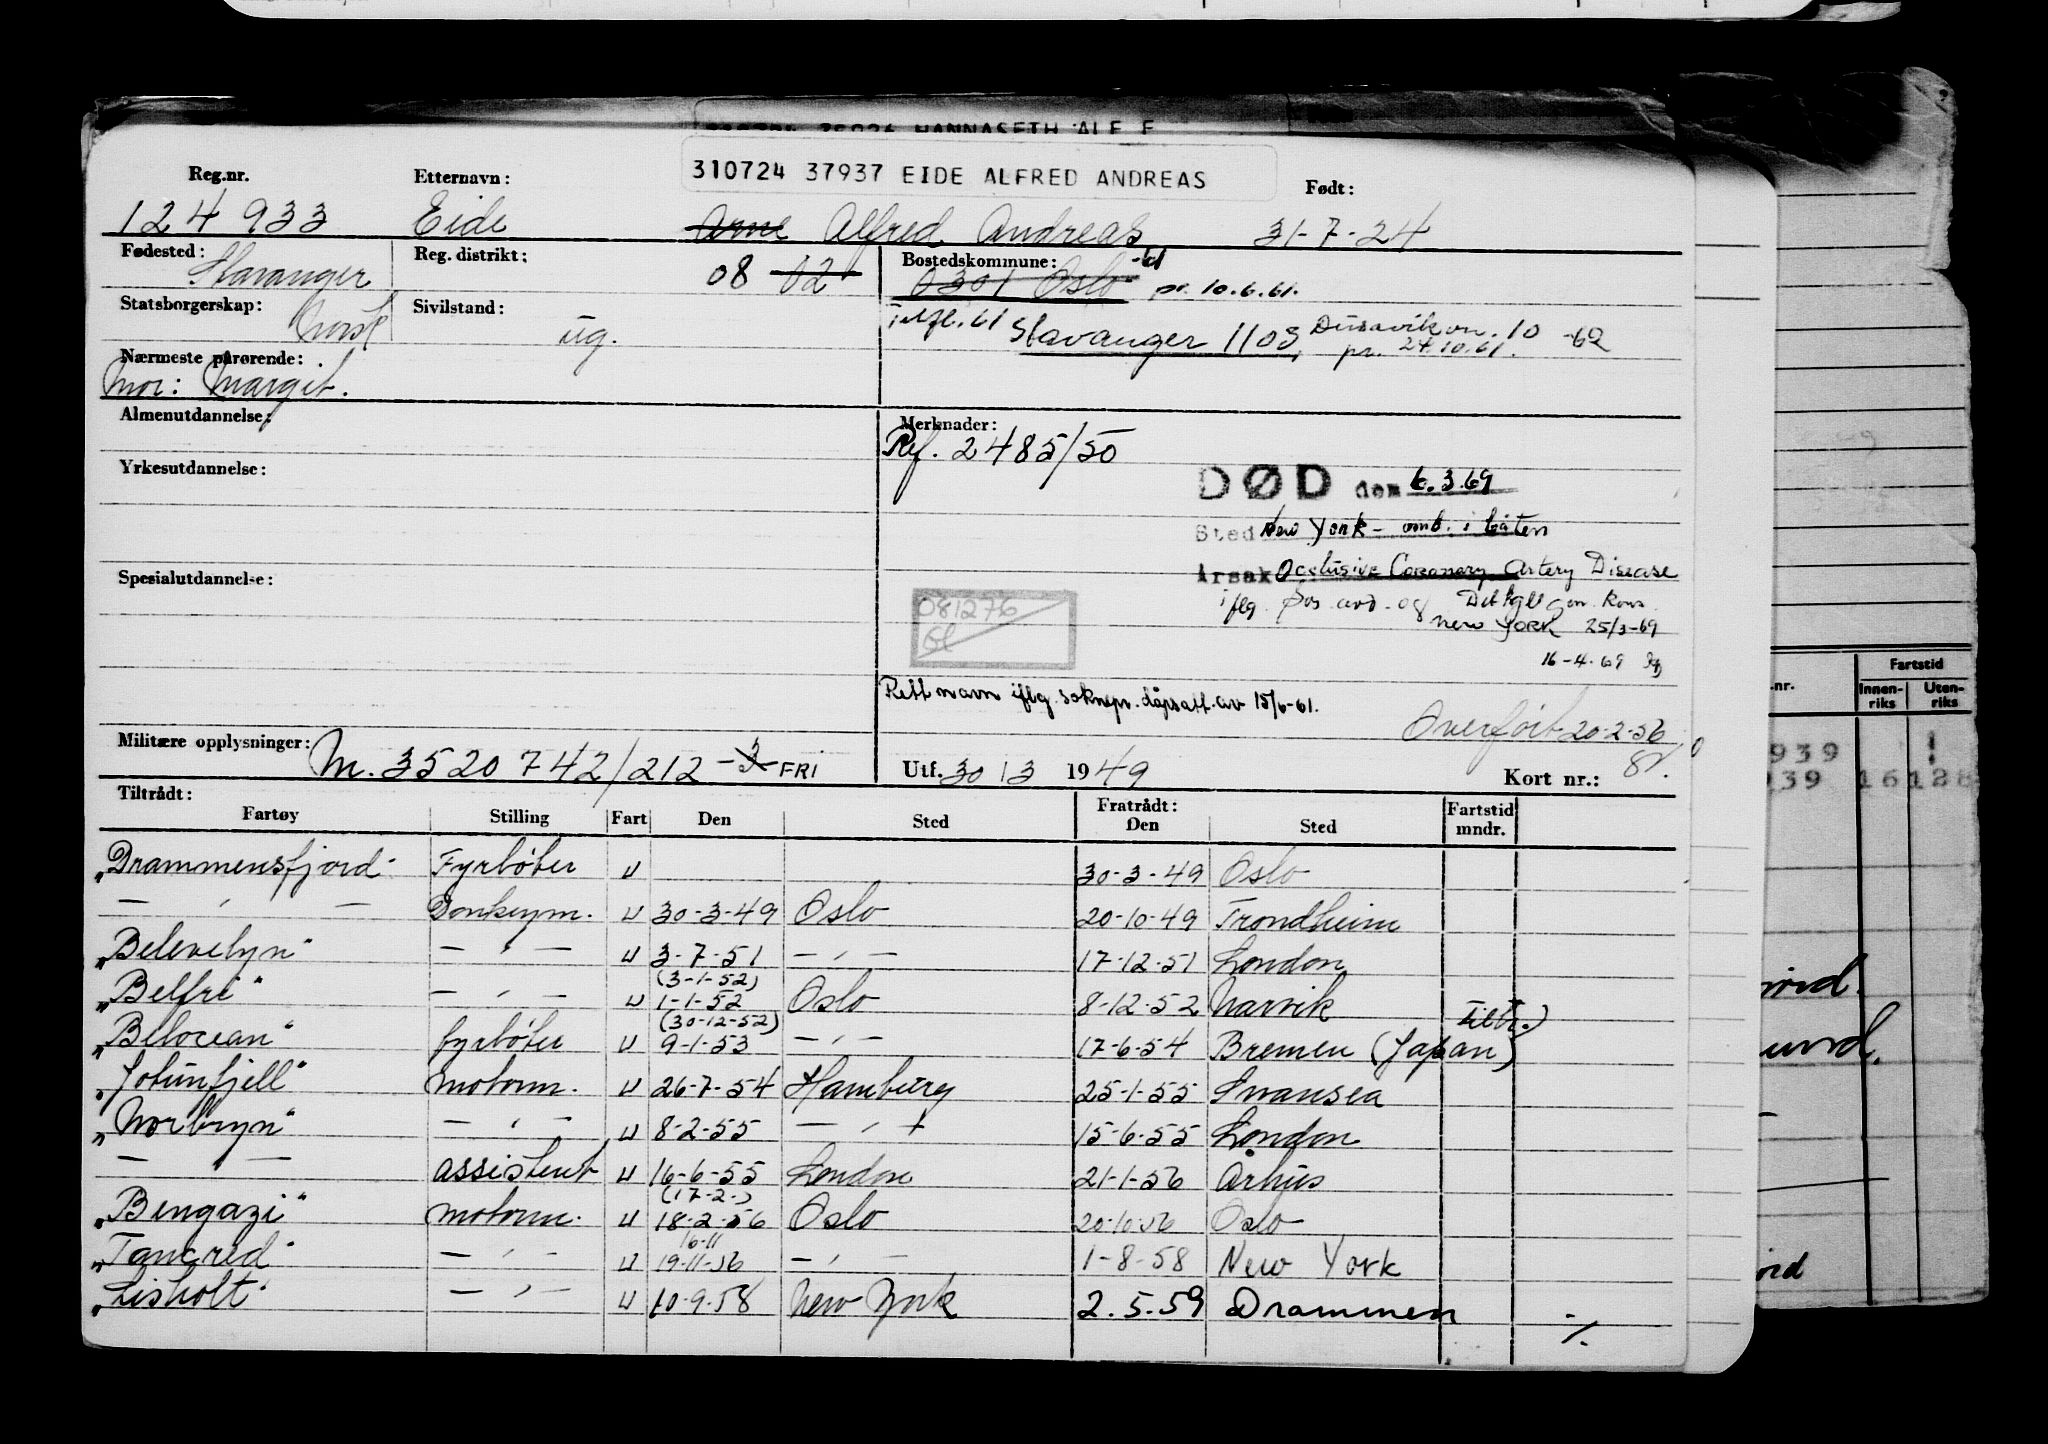 310724 37937 EIDE ALFRED ANDREAS
Reg.nr. Etternavn: Født:
124 933 Eide Arne Alfred Andreas 31-7-24
Fødested: Stavanger Reg. distrikt: 08 02 Bostedskommune: 0301 Oslo -61 pr. 10.6.61.
Statsborgerskap: Norsk Sivilstand: ug. Stavanger 1103, Dusavikvn. 10 -62
pr. 24.10.61.
Nærmeste pårørende:
Mor: Margit.
Almenutdannelse: Merknader:
Ref. 2485/50
Yrkesutdannelse:
DØD den 6.3.69
Sted New York - omb. i båten
Årsak Occlusive Coronary Artery Disease
Spesialutdannelse:
iflg. Pos. avd. og Det kgl. gen. kons.
New York 25/3-69
081276
16-4-69
Rett navn iflg. soknepr. dåpsatt. av 15/6-61.
Overført 20-2-56
Militære opplysninger: M. 3520742/212-3 FRI Utf. 30/3 1949 Kort nr.:
Tiltrådt: Fratrådt: Fartstid
Fartøy Stilling Fart Den Sted Den Sted mndr.
"Drammensfjord" Fyrbøter U 30-3-49 Oslo
— " — Donkeym. U 30-3-49 Oslo 20-10-49 Trondheim
"Belevelyn" — " — U 3-7-51 — " — 17-12-51 London
(3-1-52)
"Belfri" — " — U 1-1-52 Oslo 8-12-52 Narvik
(30-12-52) Tiltr.)
"Belocean" fyrbøter U 9-1-53 — " — 17-6-54 Bremen (Japan)
"Jotunfjell" Motorm. U 26-7-54 Hamburg 25-1-55 Swansea
"Norbryn" — " — U 8-2-55 — " — 15-6-55 London
— " — assistent U 16-6-55 London 21-1-56 Århus
(17-2-)
"Bengazi" Motorm. U 18-2-56 Oslo 20-10-56 Oslo
16-11
"Tancred" — " — U 19-11-56 — " — 1-8-58 New York
"Lisholt" — " — U 10-9-58 New York 2.5.59 Drammen
./.
Fartstid
Innen-riks Uten-riks